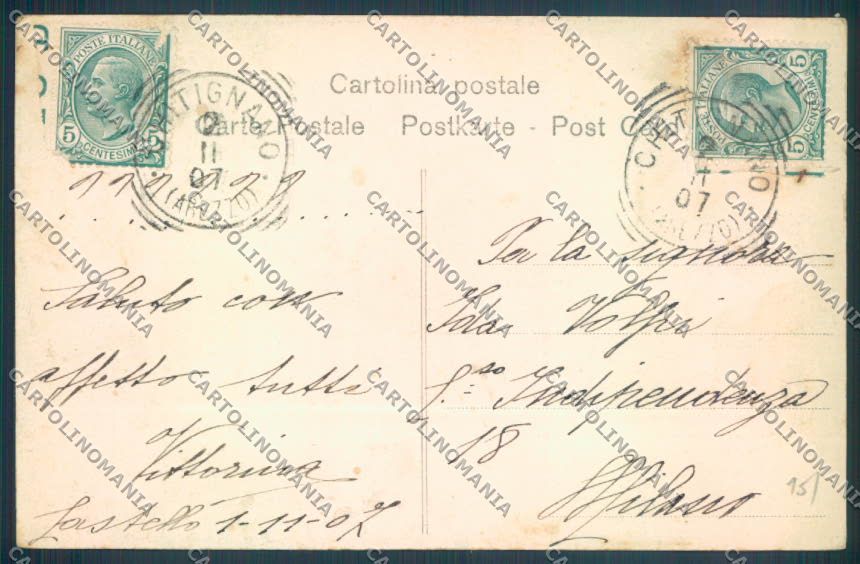 POSTE ITALIANE
5 CENTESIMI 5
2
11
07
(AREZZO)
Cartolina postale
Carte Postale Postkarte - Post Card
POSTE ITALIANE
5 CENTESIMI 5
11
07
(AREZZO)
!!!!!!!
Saluto con
affetto tutti
Vittorina
Castello 1-11-07
Per la signora
Ida Volpi
C.so Indipendenza
18
Milano
15/
CARTOLINOMANIA